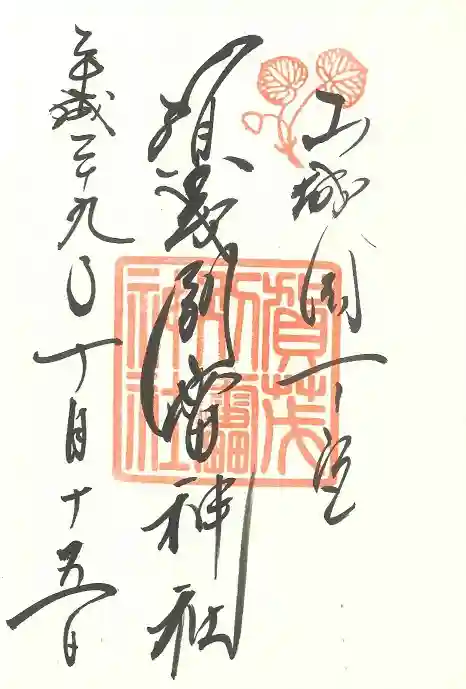 山城國一之宮
賀茂別雷神社
平成二十九年十月十五日
賀茂別雷神社